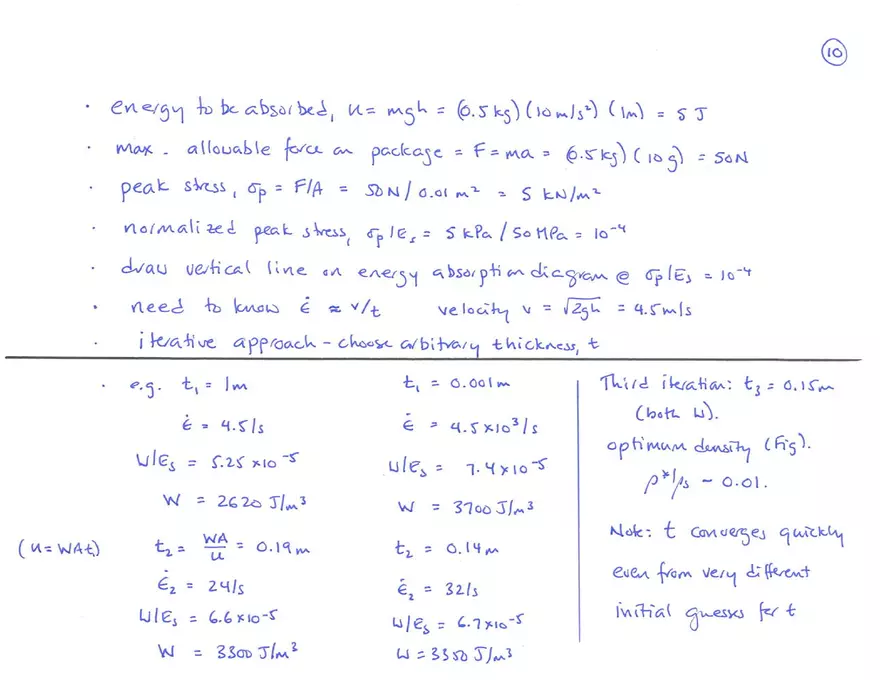 10
· energy to be absorbed, U = mgh = (0.5 kg)(10 m/s²)(1m) = 5 J
· max. allowable force on package = F = ma = (0.5 kg)(10g) = 50N
· peak stress, σp = F/A = 50N / 0.01 m² = 5 kN/m²
· normalized peak stress, σp/Es = 5 kPa / 50 MPa = 10⁻⁴
· draw vertical line on energy absorption diagram @ σp/Es = 10⁻⁴
· need to know ε̇ ≈ v/t velocity v = √2gh = 4.5 m/s
· iterative approach - choose arbitrary thickness, t
· e.g. t₁ = 1m
ε̇ = 4.5/s
W/Es = 5.25 x10⁻⁵
W = 2620 J/m³
(U = WAt) t₂ = WA/U = 0.19 m
ε̇₂ = 24/s
W/Es = 6.6 x10⁻⁵
W = 3300 J/m³
t₁ = 0.001 m
ε̇ = 4.5 x10³/s
W/Es = 7.4 x10⁻⁵
W = 3700 J/m³
t₂ = 0.14 m
ε̇₂ = 32/s
W/Es = 6.7 x10⁻⁵
W = 3350 J/m³
Third iteration: t₃ = 0.15m
(both W).
optimum density (Fig).
ρ*/ρs ~ 0.01.
Note: t converges quickly
even from very different
initial guesses for t